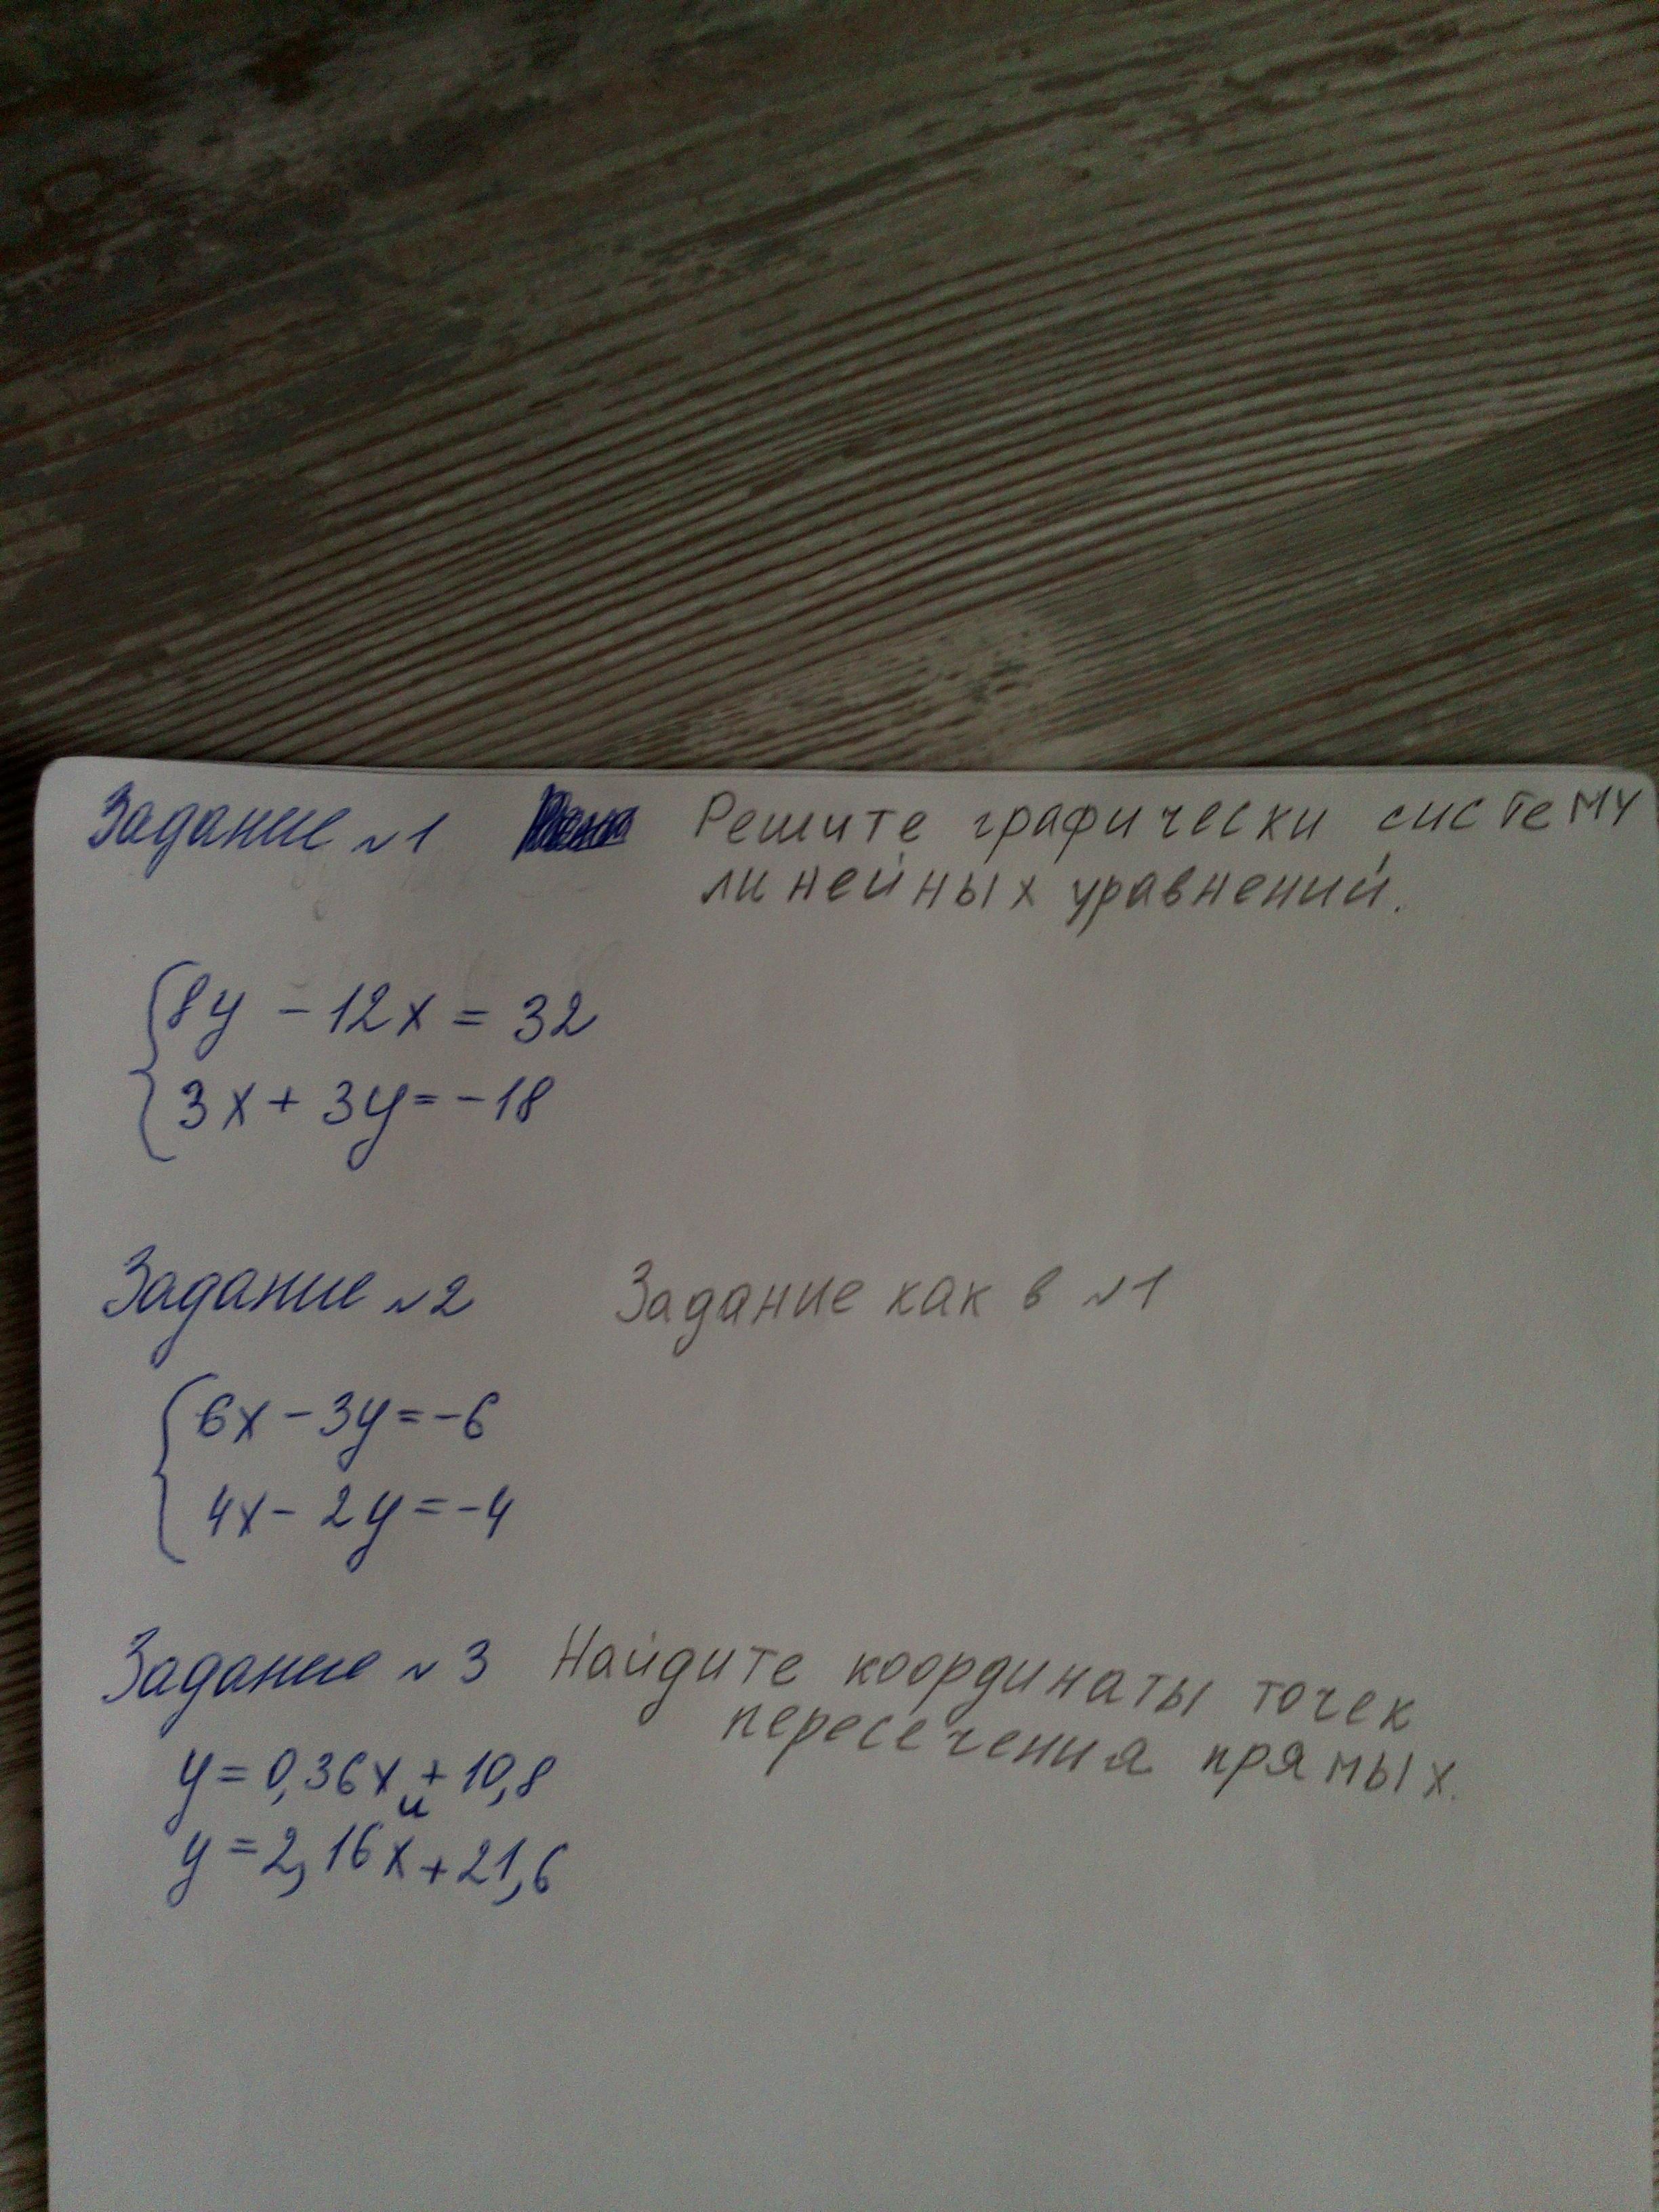 Задание №1 Решите графически систему
линейных уравнений.
8y - 12x = 32
3x + 3y = -18
Задание №2 Задание как в №1
6x - 3y = -6
4x - 2y = -4
Задание №3 Найдите координаты точек
пересечения прямых.
y = 0,36x + 10,8
и
y = 2,16x + 21,6